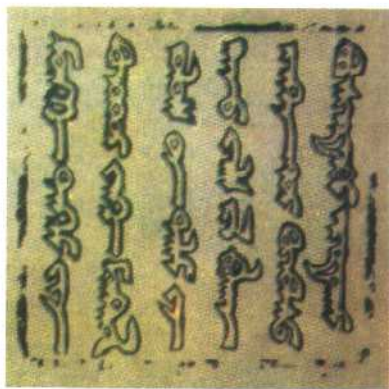 ᠮᠥᠩᠬᠡ ᠲᠩᠷᠢ ᠶᠢᠨ
ᠬᠦᠴᠦᠨᠳᠦᠷ ᠶᠡᠬᠡ ᠮᠣᠩᠭᠣᠯ
ᠤᠯᠤᠰ ᠤᠨ ᠳᠠᠯᠠᠢ ᠶᠢᠨ
ᠬᠠᠨ ᠤ ᠵᠷᠯᠢᠭ ᠢᠯ ᠪᠤᠯᠭᠠ
ᠢᠷᠭᠡᠨ ᠳᠦᠷ ᠬᠦᠷᠪᠡᠰᠦ
ᠪᠦᠰᠢᠷᠡᠲᠦᠭᠡᠢ ᠠᠶᠤᠲᠤᠭᠠᠢ